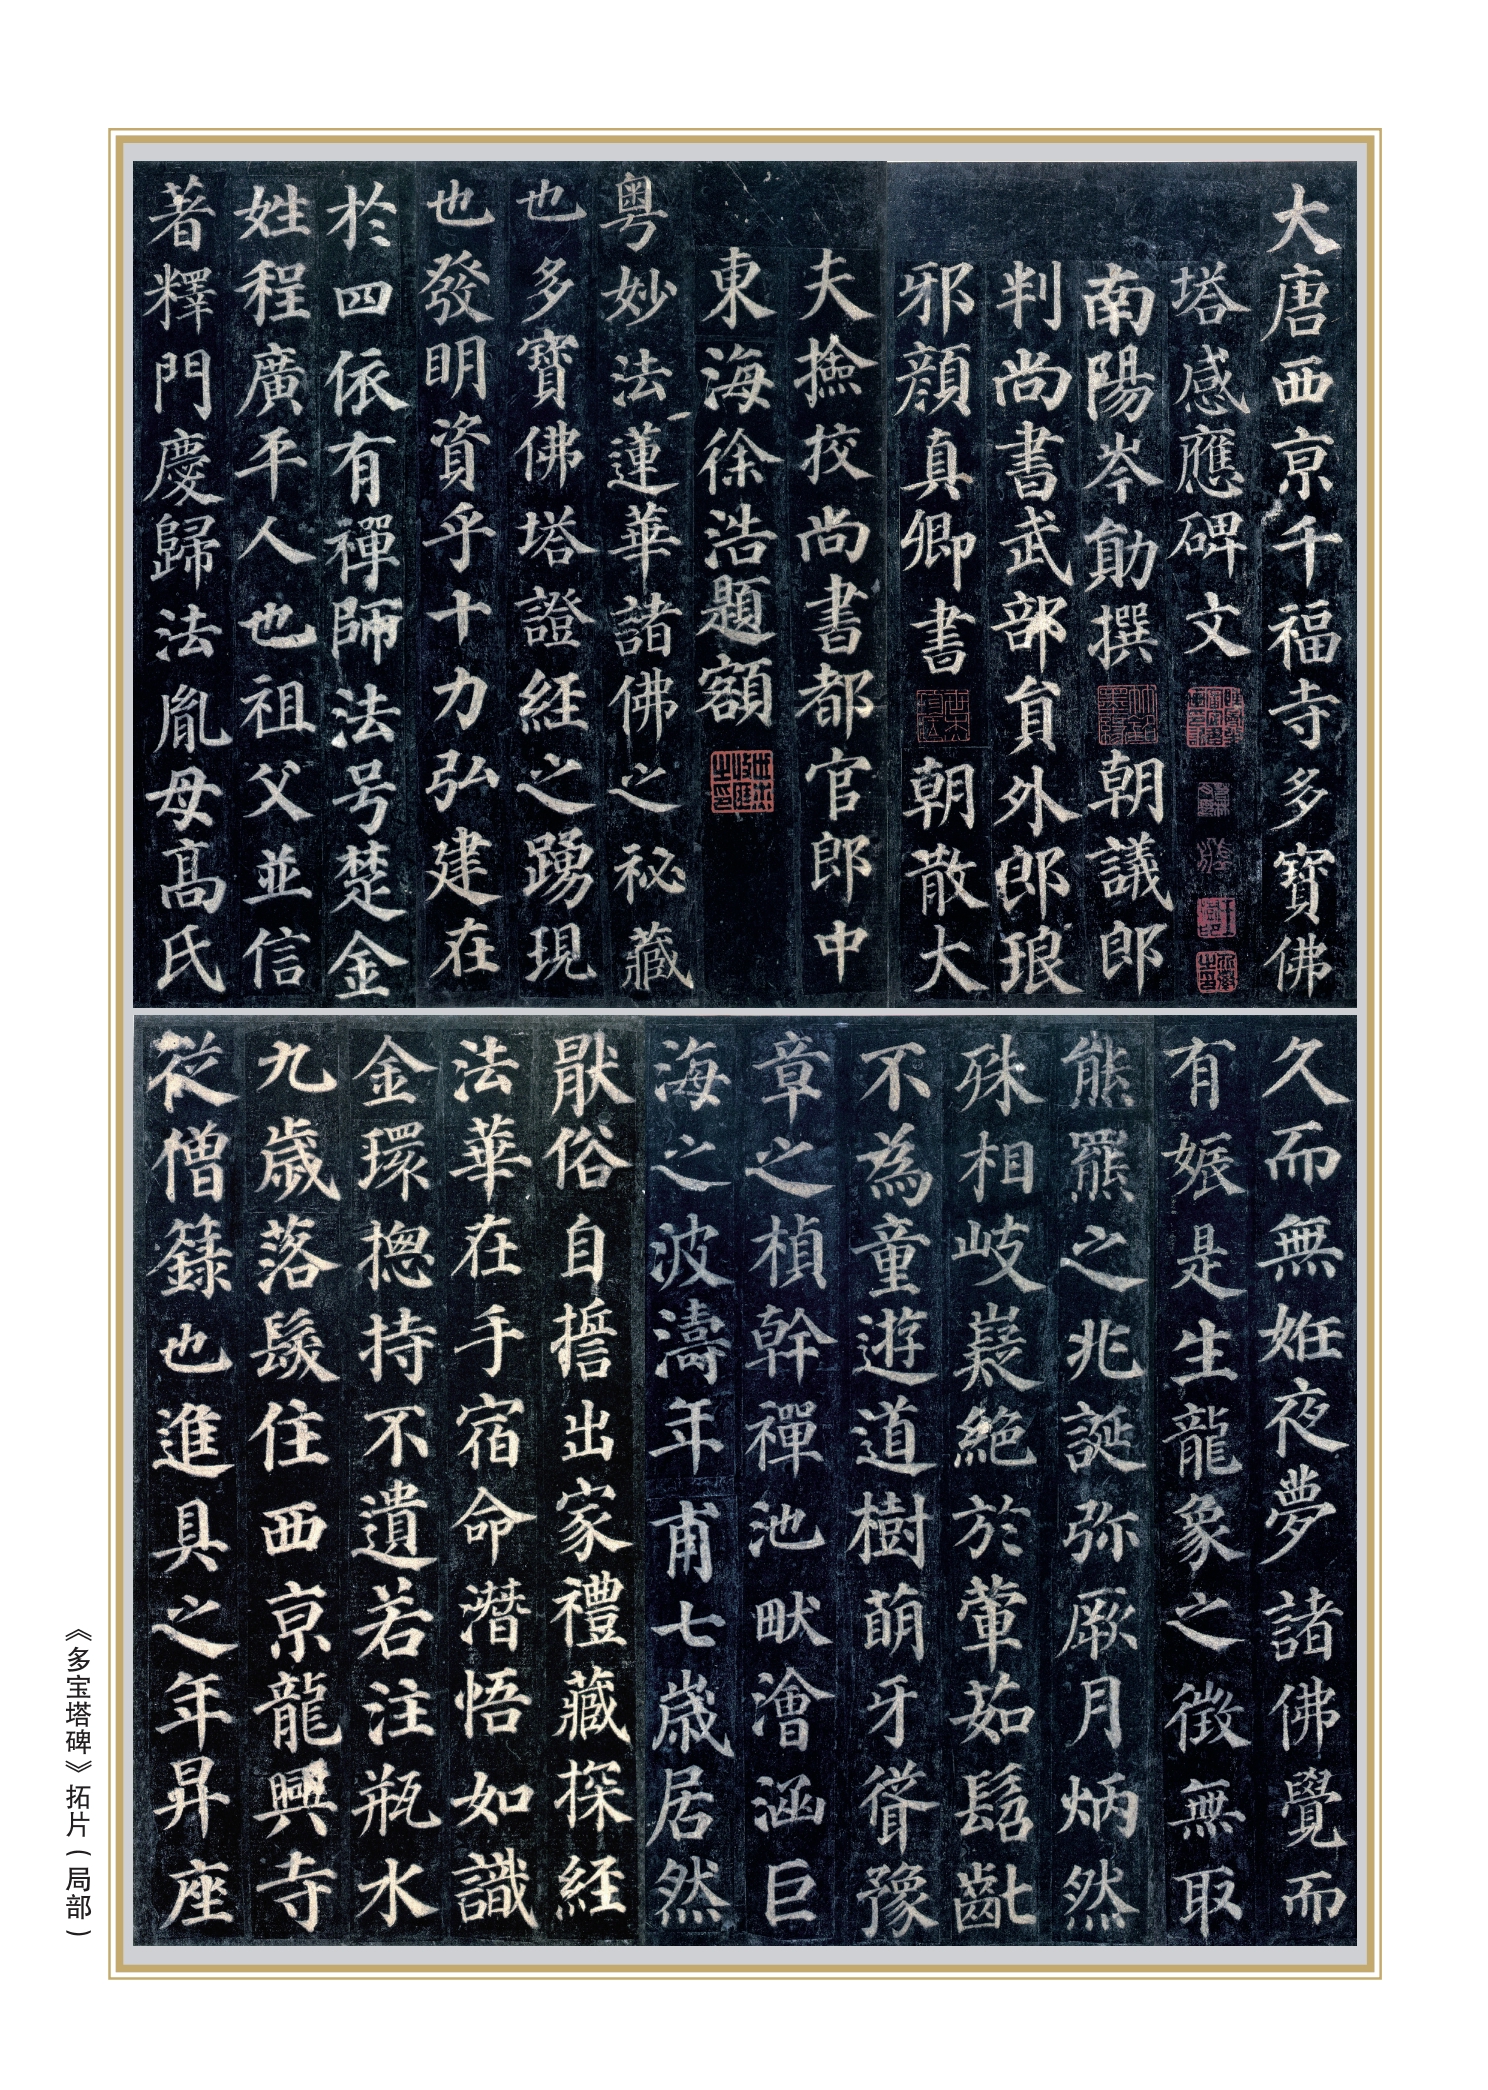 大唐西京千福寺多寶佛
塔感應碑文
南陽岑勛撰 朝議郎
判尚書武部員外郎琅
邪顏真卿書 朝散大
夫撿挍尚書都官郎中
東海徐浩題額
粵妙法蓮華諸佛之秘藏
也多寶佛塔證經之踴現
也發明資乎十力弘建在
於四依有禪師法号楚金
姓程廣平人也祖父並信
著釋門慶歸法胤母高氏
久而無姙夜夢諸佛覺而
有娠是生龍象之徵無取
熊羆之兆誕弥厥月炳然
殊相岐嶷絕於葷茹髫齔
不為童遊道樹萌牙聳豫
章之楨幹禪池畎澮涵巨
海之波濤年甫七歲居然
猒俗自誓出家禮藏探經
法華在手宿命潛悟如識
金環揔持不遺若注瓶水
九歲落髮住西京龍興寺
從僧籙也進具之年昇座
《多宝塔碑》拓片(局部)